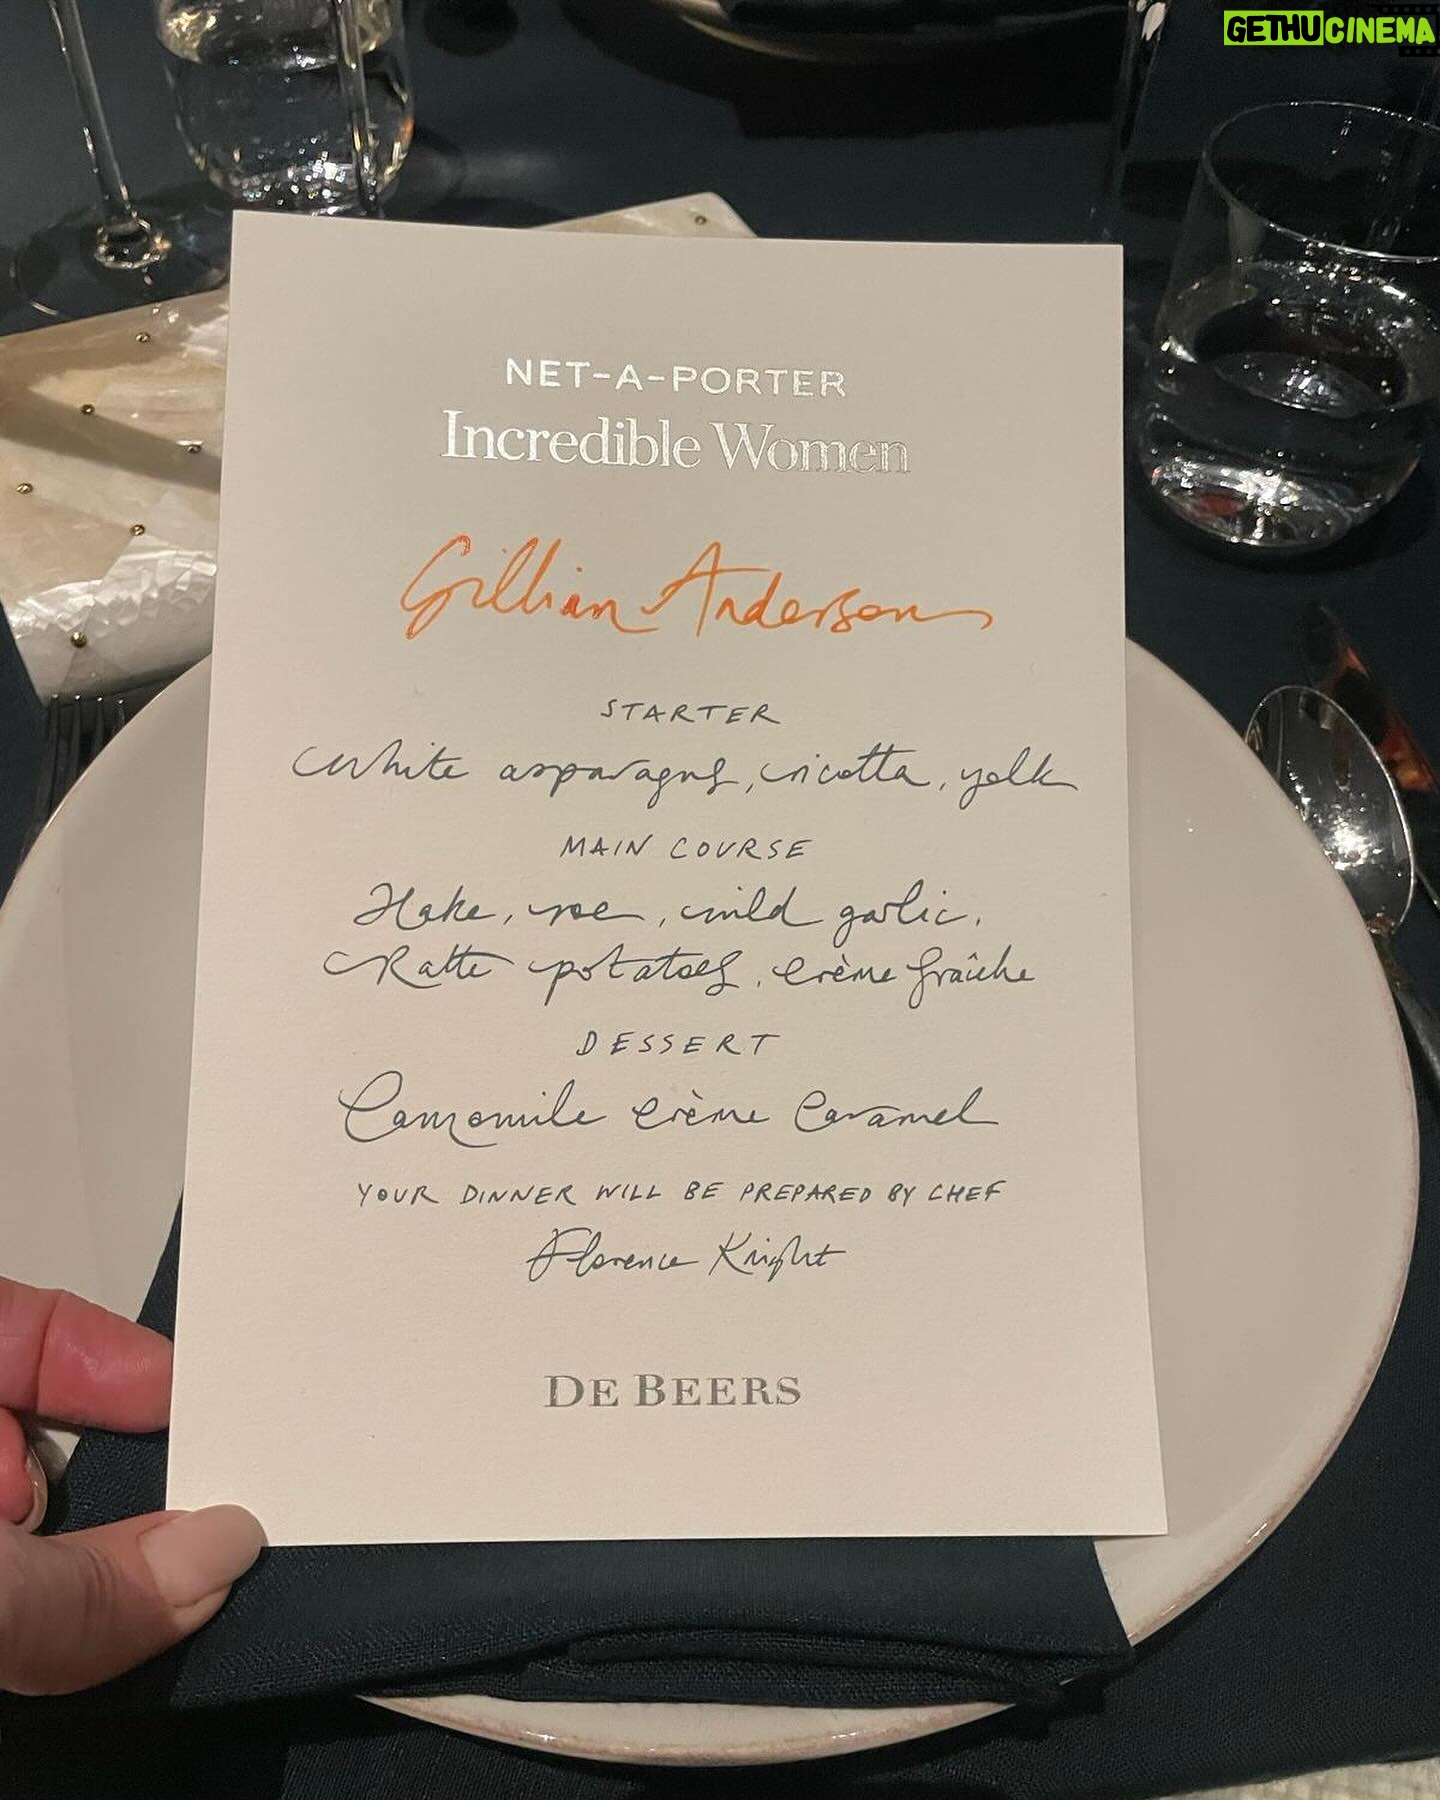 GETHUCINEMA
NET-A-PORTER
Incredible Women
Gillian Anderson
STARTER
White asparagus, ricotta, yolk
MAIN COURSE
Hake, roe, wild garlic,
Ratte potatoes, crème fraîche
DESSERT
Camomile Crème Caramel
YOUR DINNER WILL BE PREPARED BY CHEF
Florence Knight
DE BEERS